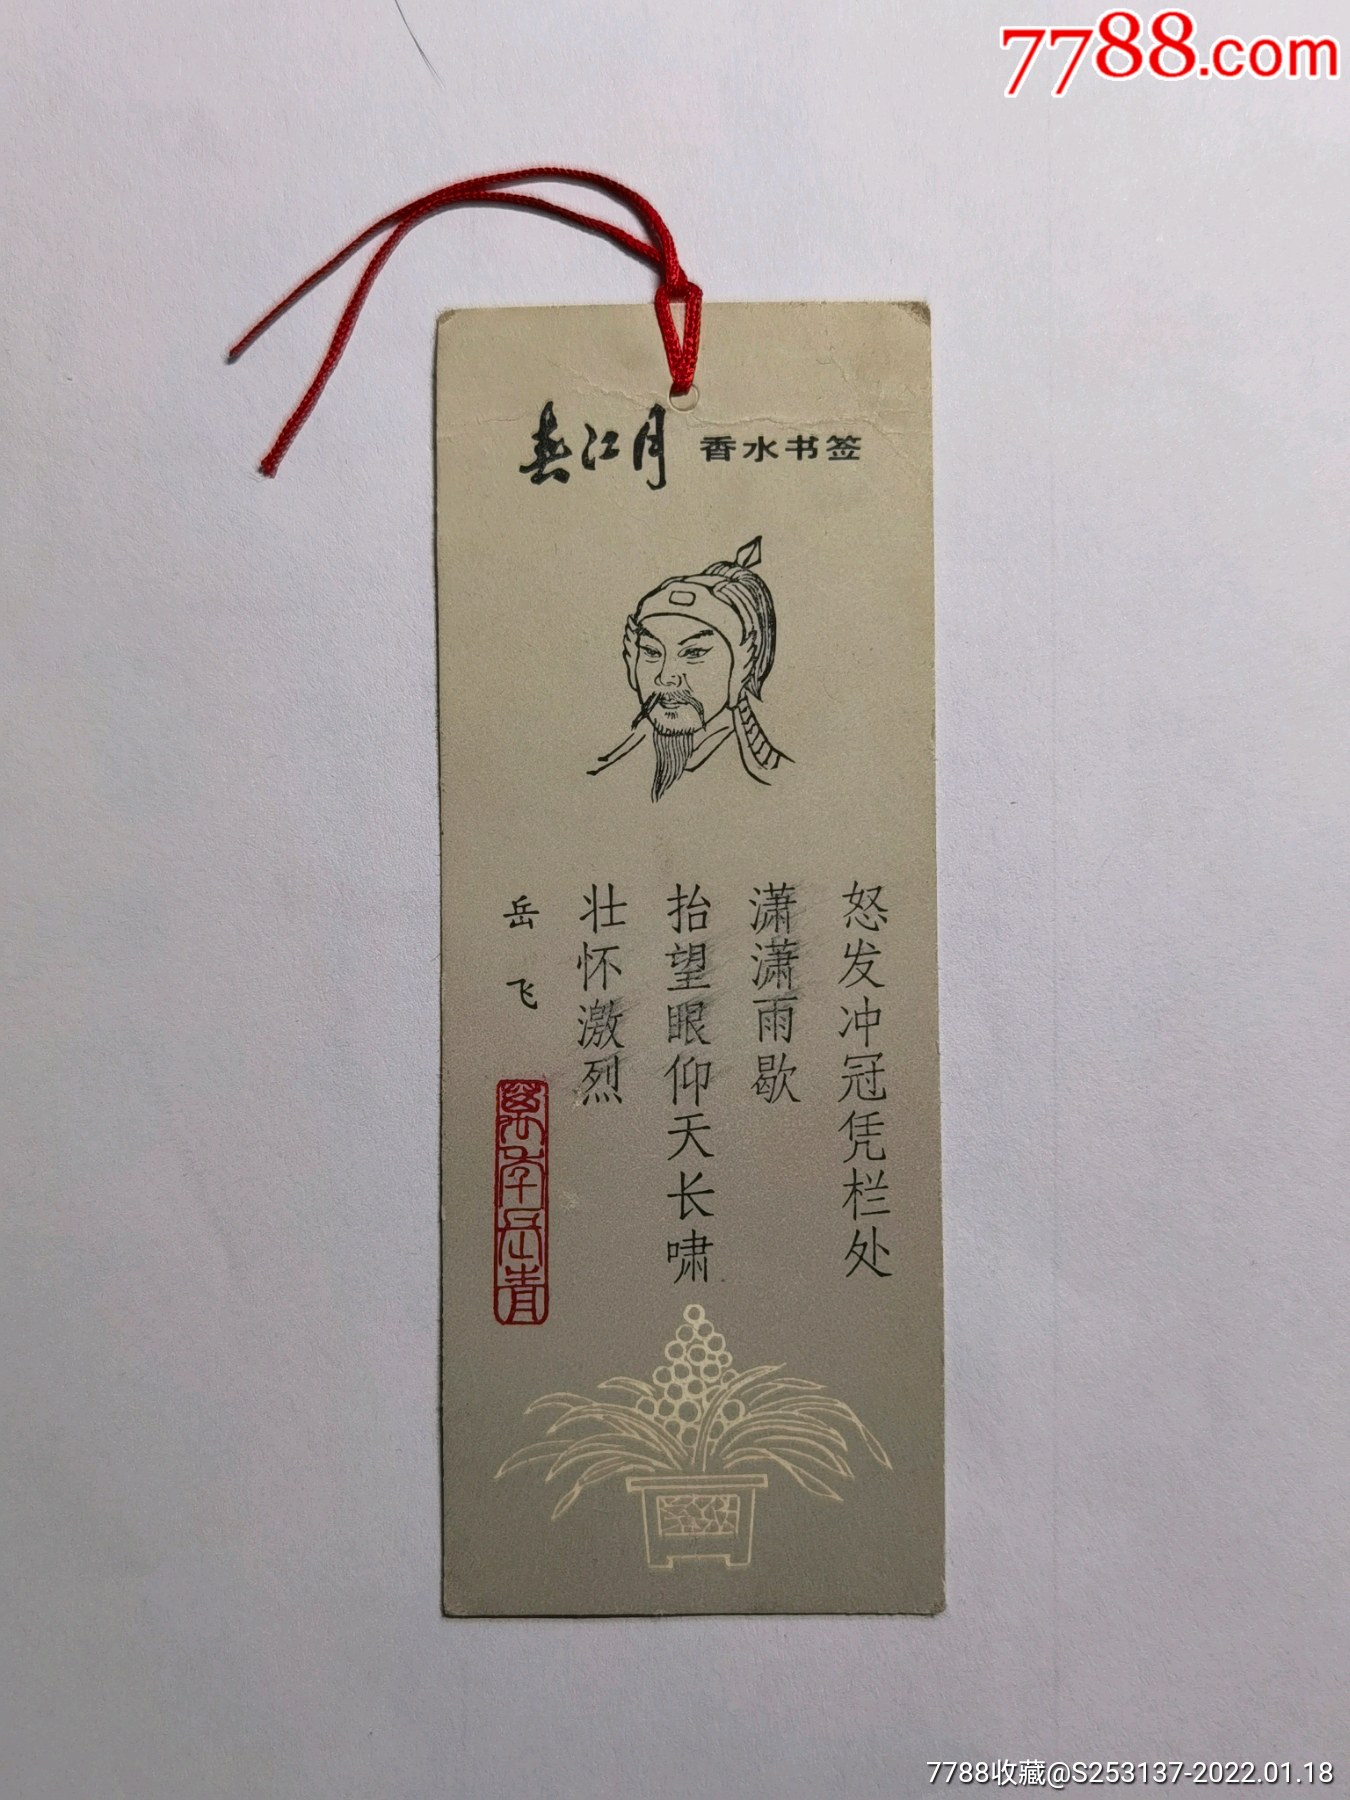 7788.com
春江月 香水书签
怒发冲冠凭栏处
潇潇雨歇
抬望眼仰天长啸
壮怀激烈
岳飞
7788收藏@S253137-2022.01.18